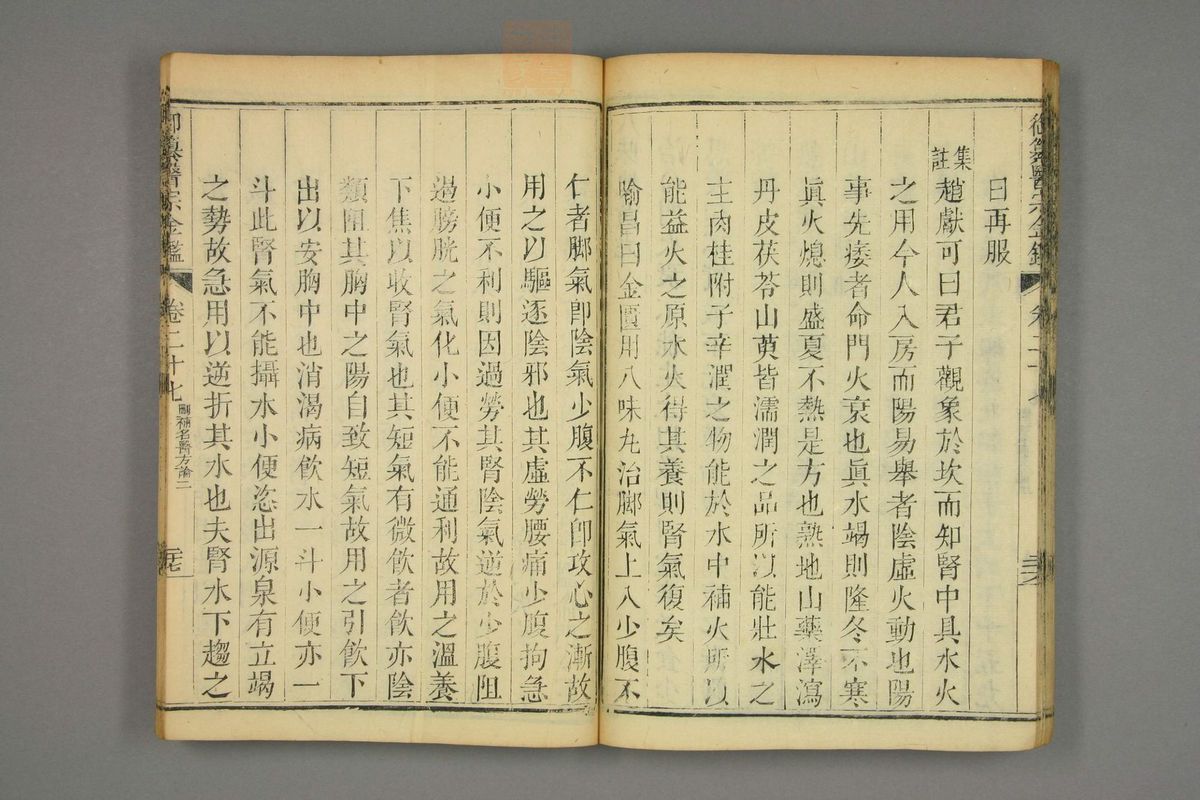 曰再服
集註趙獻可曰君子觀象於坎而知腎中具水火
之用今人入房而陽易舉者陰虛火動也陽
事先痿者命門火衰也眞水竭則隆冬不寒
眞火熄則盛夏不熱是方也熟地山藥澤瀉
丹皮茯苓山萸皆濡潤之品所以能壯水之
主肉桂附子辛潤之物能於水中補火所以
能益火之原水火得其養則腎氣復矣
喻昌曰金匱用八味丸治脚氣上入少腹不
仁者脚氣卽陰氣少腹不仁卽攻心之漸故
用之以驅逐陰邪也其虛勞腰痛少腹拘急
小便不利則因過勞其腎陰氣逆於少腹阻
遏膀胱之氣化小便不能通利故用之溫養
下焦以收腎氣也其短氣有微飮者飮亦陰
類阻其胸中之陽自致短氣故用之引飮下
出以安胸中也消渴病飮水一斗小便亦一
斗此腎氣不能攝水小便恣出源泉有立竭
之勢故急用以逆折其水也夫腎水下趨之
御纂醫宗金鑑
卷二十七
刪補名醫方論二